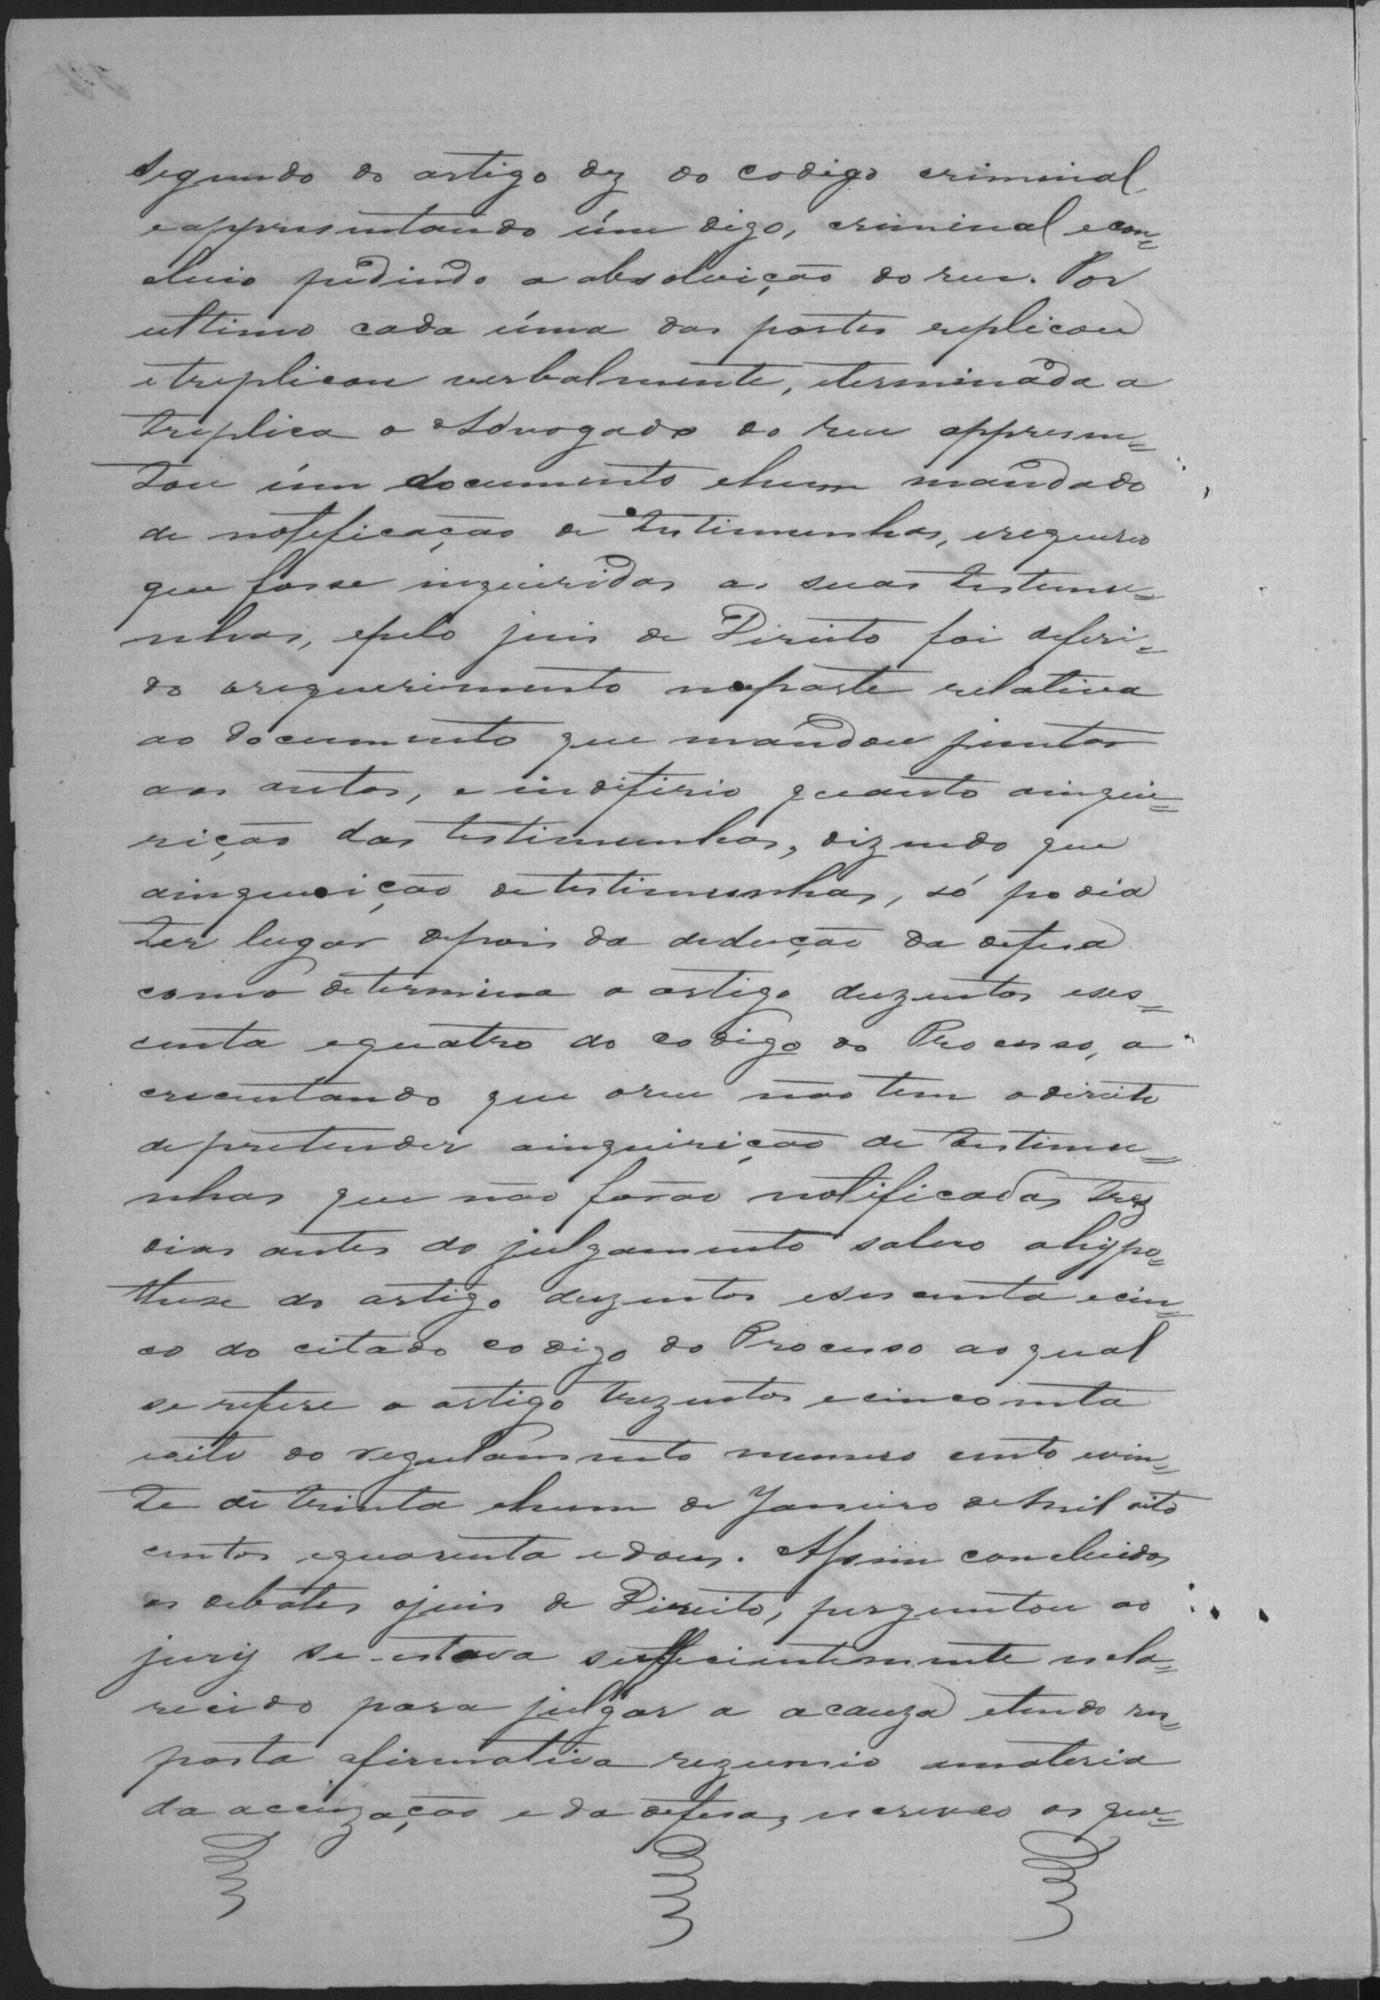 segundo do artigo dez do codigo criminal
e appresentando úm digo, criminal e con=
cluio pedindo a absolvição do reu. Por
ultimo cada úma das partes replicou
e treplicou verbalmente, eterminada a
treplica o Advogado do reu appresen=
tou úm documento ehum mandado
de noteficação de testimunhas, erequereo
que fosse inqueridas as suas testemu=
nhas, epelo juis de Direito foi deferi=
do orequerimento naparte relativa
ao documento que mandou juntar
aos autos, e indifirio quanto ainque=
rição das testimunhas, dizendo que
ainqueição detestimunhas, só podia
ter lugar depois da dedução da defesa
como determina o artigo duzentos eses=
centa equatro do codigo do Processo, a
crecentando que oreu não tem odireito
depretender ainquirição de testimu=
nhas que não forão notificadas tres
dias antes do julgamento salvo ahypo=
these do artigo duzentos esescenta ecin=
co do citado codigo do Processo ao qual
se refere o artigo trezentos ecincoenta
eoito do regulamento numero cento evin=
te de trinta ehum de Janeiro demil oito
centos equarenta edous. Assim concluidos
os debates ojuis de Direito, perguntou ao
jury se estava sufficientemente escla=
recido para julgar a acauza etendo res=
posta afirmativa rezumio amateria
da accuzação e da defesa, escreveo os que=